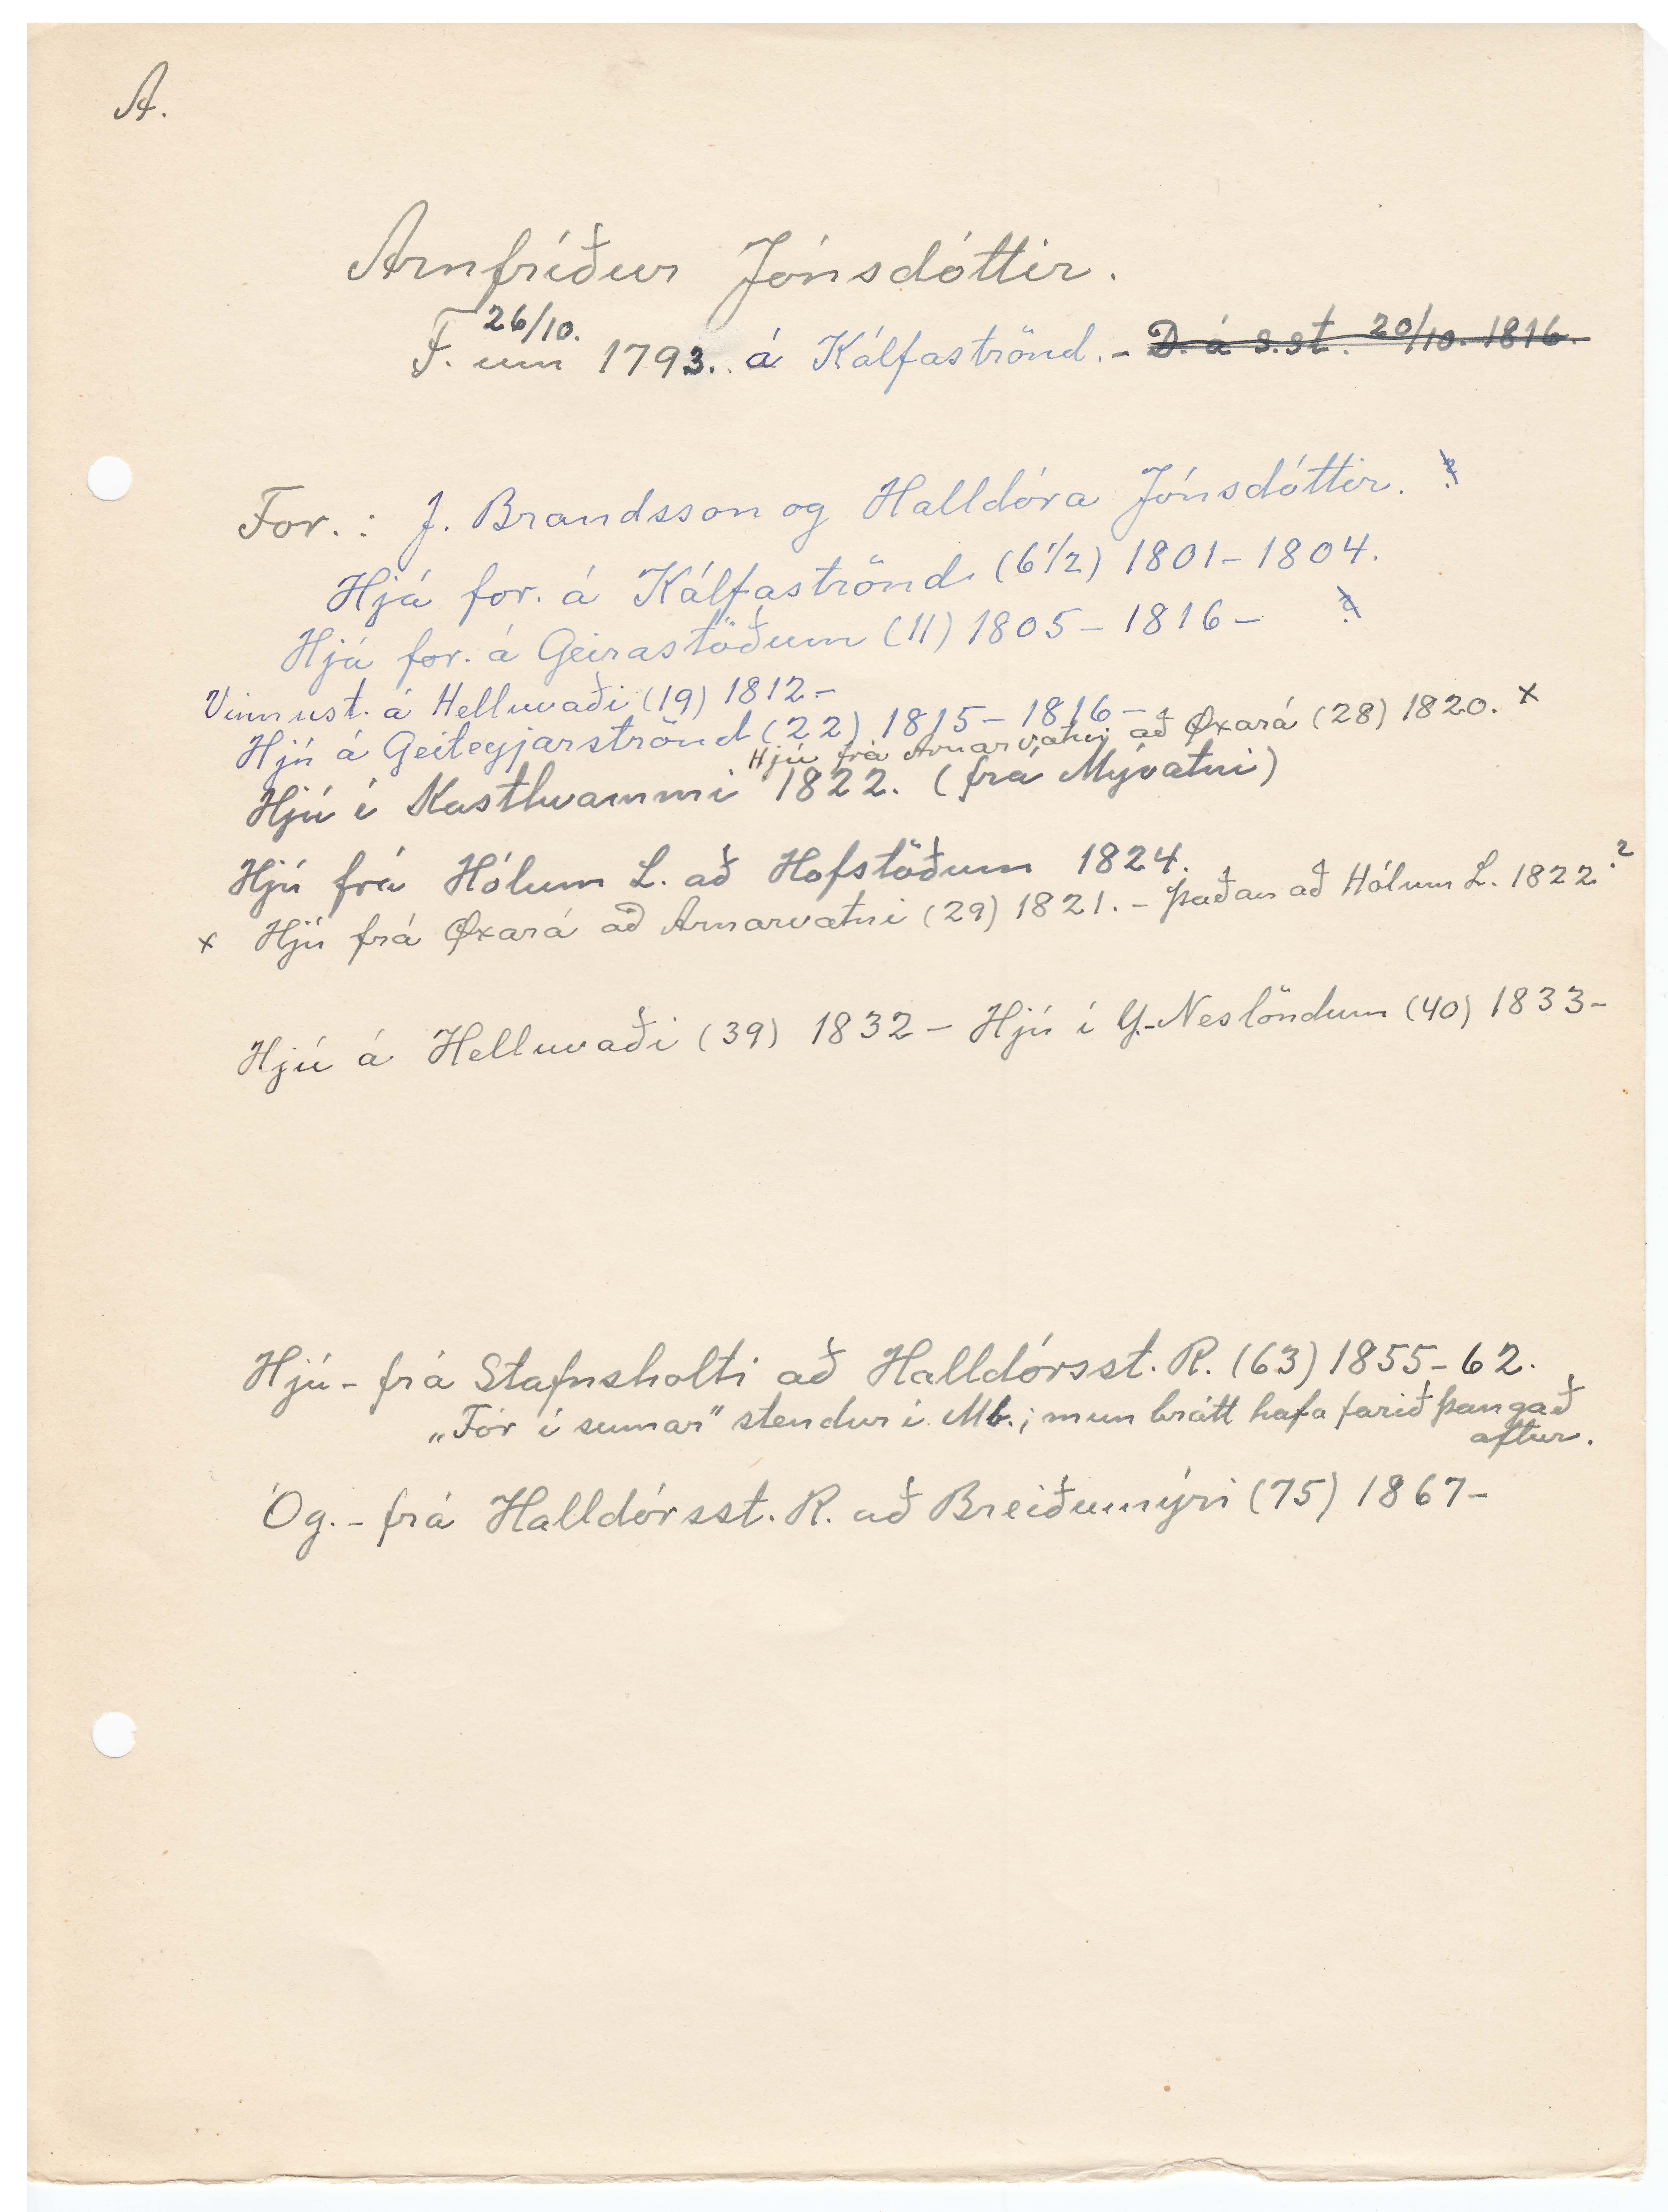 A.
Arnfríður Jónsdóttir.
26/10.
F. um 1793. á Kálfaströnd. - D. á s.st. 20/10. 1816.
For.: J. Brandsson og Halldóra Jónsdóttir. ?
Hjá for. á Kálfaströnd (6 1/2) 1801-1804.
Hjá for. á Geirastöðum (11) 1805-1816- ?
Vinnust. á Helluvaði (19) 1812-
Hjú á Geiteyjarströnd (22) 1815-1816-
Hjú frá Arnarvatni að Øxará (28) 1820. x
Hjú í Kasthvammi 1822. (frá Mývatni)
Hjú frá Hólum L. að Hofstöðum 1824.
x Hjú frá Øxará að Arnarvatni (29) 1821. - þaðan að Hólum L. 1822.?
Hjú á Helluvaði (39) 1832 - Hjú í Y.-Neslöndum (40) 1833-
Hjú - frá Stafnsholti að Halldórsst. R. (63) 1855-62.
„Fór í sumar" stendur í Mb.; mun brátt hafa farið þangað
aftur.
Óg. - frá Halldórsst. R. að Breiðumýri (75) 1867-